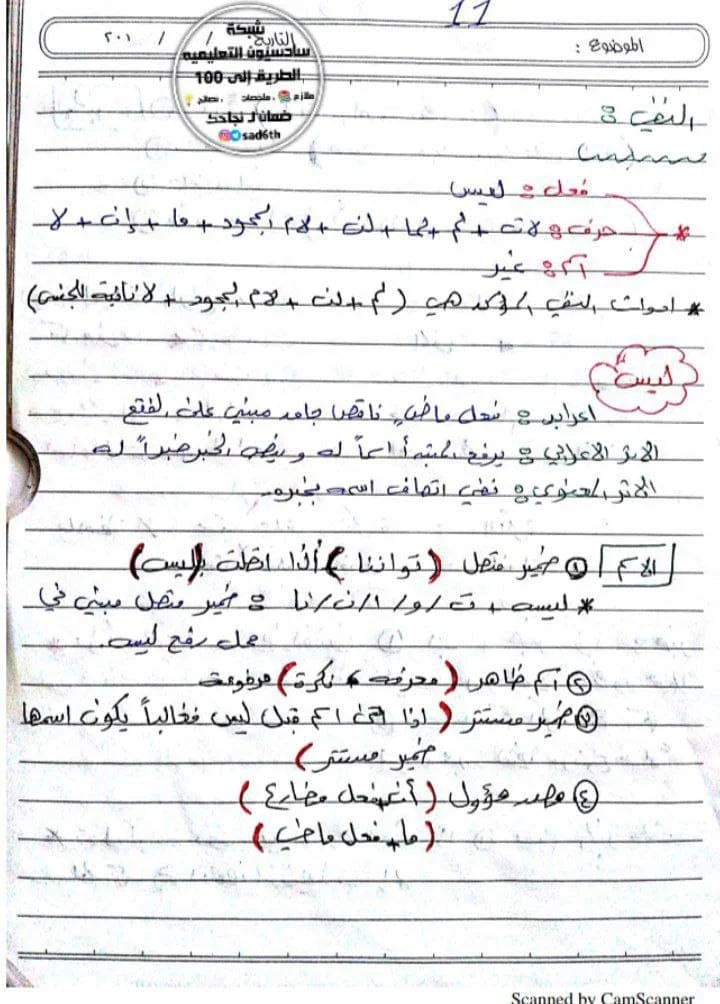 11
الموضوع :
التاريخ / / ٢٠١
شبكة
سادسيون التعليمية
الطريق إلى 100
ملازم ، ملخصات ، نصائح
ضمان لـ نجاحك
sad6th
النفي :
فعل : ليس
* حرف : لات + لم + لما + لن + لام الجحود + ما + إن + لا
اسم : غير
* ادوات النفي المؤكد هي (لم + لن + لام الجحود + لا نافية للجنس)
ليس
اعرابه : فعل ماضٍ ناقص جامد مبني على الفتح
الاثر الاعرابي : يرفع المبتدأ اسماً له وينصب الخبر خبراً له
الاثر المعنوي : نفي اتصاف اسمه بخبره.
الاسم ① ضمير متصل (تواننا) أذا اتصلت بـ(ليس)
* ليس + ت / و / ا / ن / نا : ضمير متصل مبني في
محل رفع ليس.
② اسم ظاهر (معرفه، نكرة) مرفوعة
③ ضمير مستتر (اذا اسم قبل ليس فغالباً يكون اسمها
ضمير مستتر)
④ مصدر مؤول (أن + فعل مضارع)
(ما + فعل ماضي)
Scanned by CamScanner